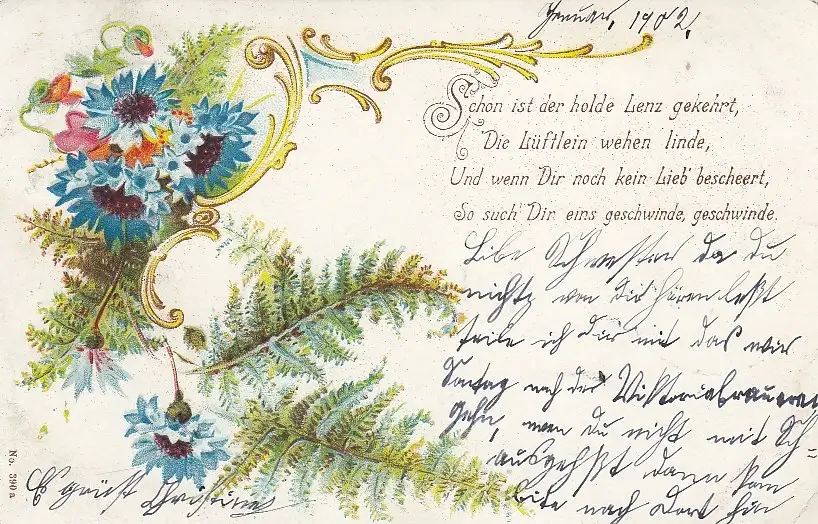 Januar, 1902,
Schon ist der holde Lenz gekehrt,
Die Lüftlein wehen linde,
Und wenn Dir noch kein Lieb' bescheert,
So such' Dir eins geschwinde, geschwinde.
Libe Schwester da du
nichts von dir hören leßt
teile ich dir mit das wir
Sontag nach der Viktoriabrauerei
gehn, wen du nicht mit Sch=
ausgehst dann kom
bite nach dort hin
Es grüst Christine
No. 390a